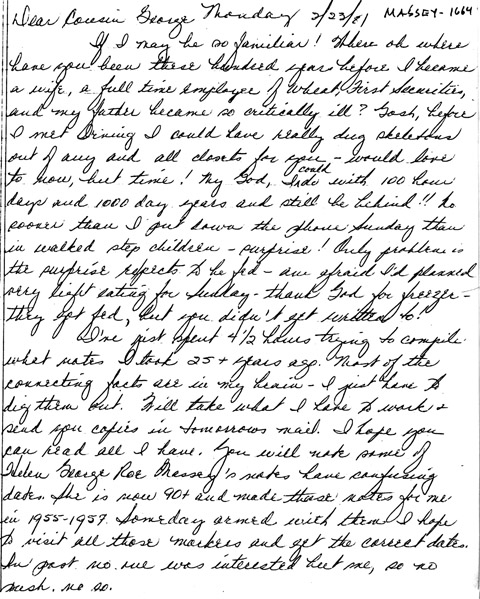 Dear Cousin George Monday 2/23/81 MASSEY-1664
If I may be so familiar! Where oh where
have you been these hundred years before I became
a wife, a full time employee of Wheat First Securities,
and my father became so critically ill? Gosh, before
I met Irving I could have really dug skeletons
out of any and all closets for you - would love
to now, but time! My God, could I do with 100 hour
days and 1000 day years and still be behind!! No
sooner than I put down the phone Sunday than
in walked step children - surprise! Only problem is
the surprise expects to be fed - am afraid I'd planned
very light eating for Sunday - thank God for freezer -
they got fed, but you didn't get written to!
I've just spent 4 1/2 hours trying to compile
what notes I took 25+ years ago. Most of the
connecting facts are in my brain - I just have to
dig them out. Will take what I have to work &
send you copies in tomorrows mail. I hope you
can read all I have. You will note some of
Helen George Roe Massey's notes have confusing
dates. She is now 90+ and made those notes for me
in 1955-1957. Someday armed with them I hope
to visit all those markers and get the correct dates.
In past no one was interested but me, so no
rush. no so.